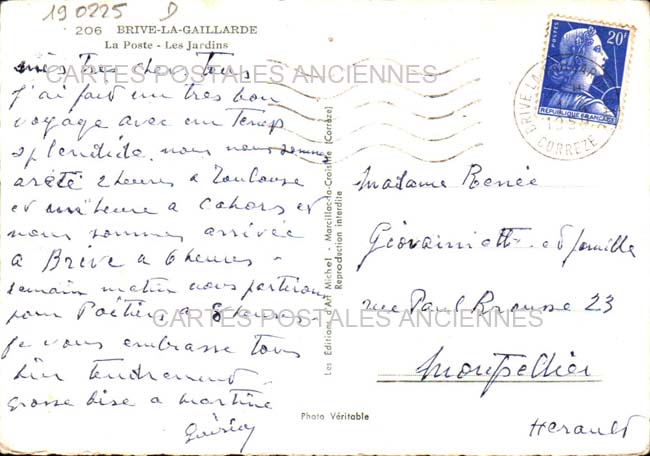 19 0225 D
206 BRIVE-LA-GAILLARDE
La Poste - Les Jardins
mes tres cher tous
j'ai fait un tres bon
voyage avec un temps
splendide nous nous sommes
arété 2 heures a Toulouse
et une heure a Cahors et
nous sommes arrivée
a Brive a 6 heures -
demain matin nous partirons
pour Poitier a 8 heures -
je vous embrasse tous
bien tendrement -
grosse bise a martine
CARTES POSTALES ANCIENNES
CARTES POSTALES ANCIENNES
Les Editions d'Art Michel - Marcillac-la-Croisille (Corrèze)
Reproduction interdite
Photo Véritable
POSTES 20F
REPUBLIQUE FRANÇAISE
BRIVE LA
CORREZE
Madame Renée
et famille
rue Paul Brousse 23
Montpellier
Herault